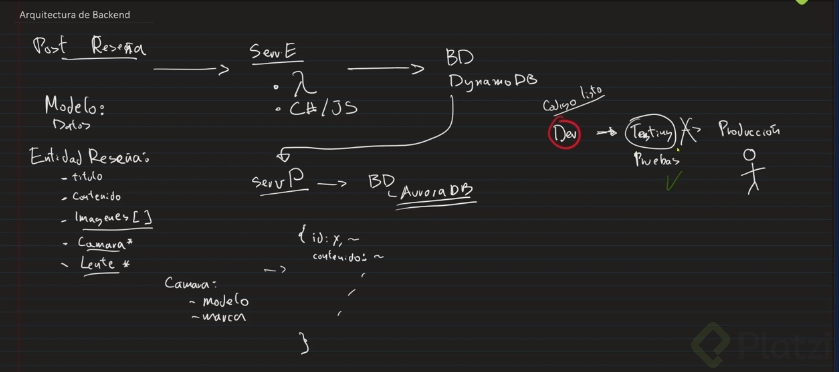 Arquitectura de Backend
Post Reseña
Serv E
λ
C#/JS
BD
DynamoDB
Modelo:
Datos
Entidad Reseña:
- titulo
- Contenido
- Imagenes []
- Camara*
- Lente *
Serv P
BD
AuroraDB
{ id: x, ~
contenido: ~
}
Camara:
- modelo
- marca
Codigo listo
Dev
Testing
X
Producción
Pruebas
✓
Platzi